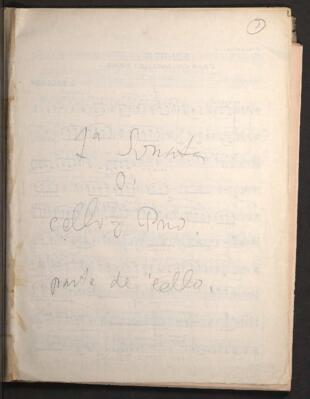 1ª Sonata
cello y Pno.
parte de cello.